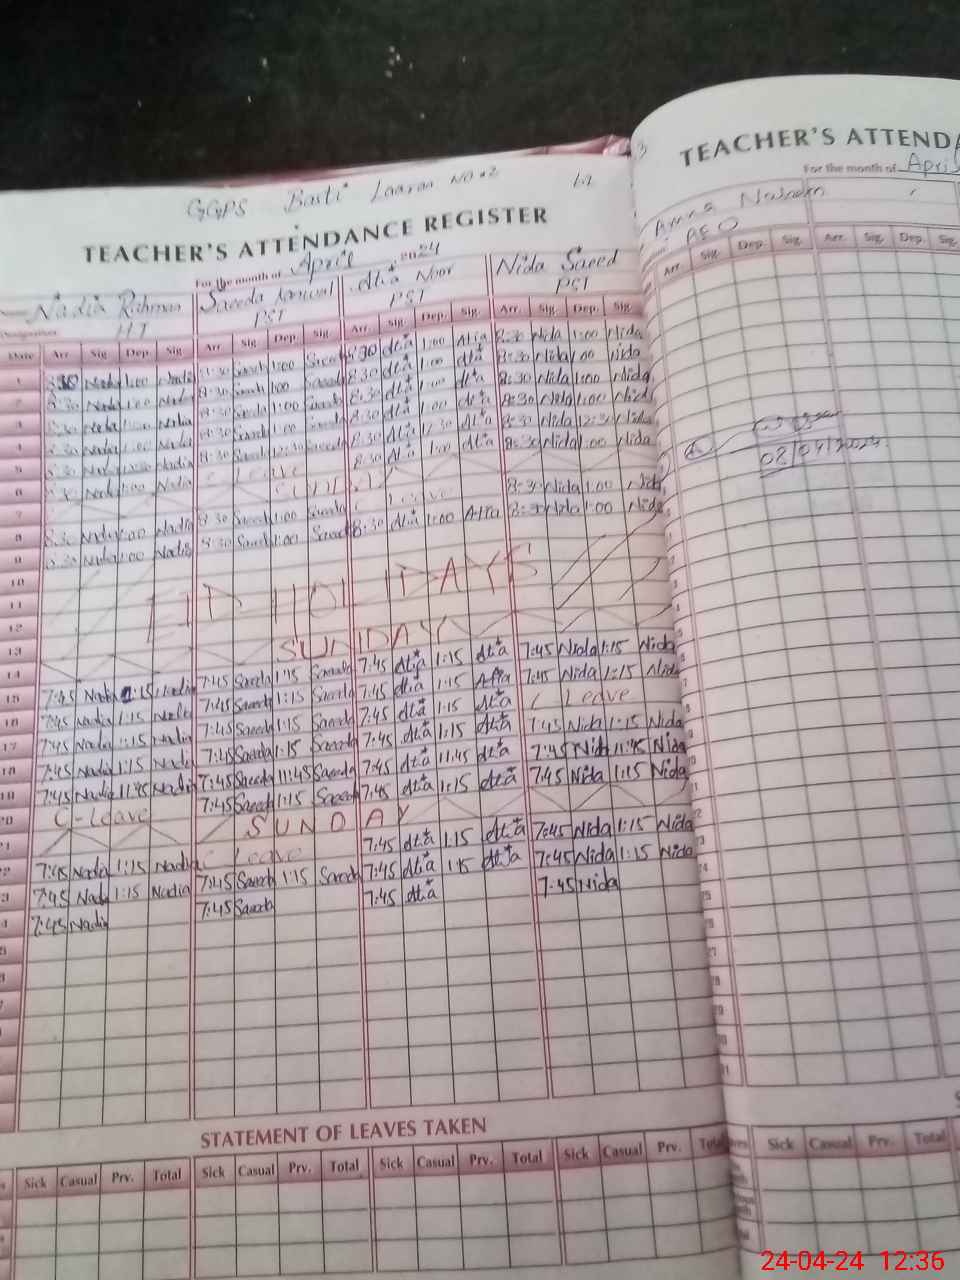 GGPS Basti Laaran NO #2
TEACHER'S ATTENDANCE REGISTER
For the month of April 2024
Nadia Rahman Saeeda Atia Noor Nida Saeed
HT PST PST PST
Date Arr. Sig. Dep. Sig. Arr. Sig. Dep. Sig. Arr. Sig. Dep. Sig. Arr. Sig. Dep. Sig.
1 8:30 Nadia 1:00 Nadia 8:30 Saeeda 1:00 Saeeda 8:30 Atia 1:00 Atia 8:30 Nida 1:00 Nida
2 8:30 Nadia 1:00 Nadia 8:30 Saeeda 1:00 Saeeda 8:30 Atia 1:00 Atia 8:30 Nida 1:00 Nida
3 8:30 Nadia 1:00 Nadia 8:30 Saeeda 1:00 Saeeda 8:30 Atia 1:00 Atia 8:30 Nida 1:00 Nida
4 8:30 Nadia 1:00 Nadia 8:30 Saeeda 1:00 Saeeda 8:30 Atia 1:00 Atia 8:30 Nida 1:00 Nida
5 8:30 Nadia Nadia 8:30 Saeeda 12:30 Saeeda 8:30 Atia 12:30 Atia 8:30 Nida 12:30 Nida
6 8:30 Nadia 1:00 Nadia C Leave 8:30 Atia 1:00 Atia 8:30 Nida 1:00 Nida
7 SUNDAY
8 8:30 Nadia 1:00 Nadia 8:30 Saeeda 1:00 Saeeda C Leave 8:30 Nida 1:00 Nida
9 8:30 Nadia 1:00 Nadia 8:30 Saeeda 1:00 Saeeda 8:30 Atia 1:00 Atia 8:30 Nida 1:00 Nida
10
11 EID HOLIDAYS
12
13
14 SUNDAY
15 7:45 Nadia 1:15 Nadia 7:45 Saeeda 1:15 Saeeda 7:45 Atia 1:15 Atia 7:45 Nida 1:15 Nida
16 7:45 Nadia 1:15 Nadia 7:45 Saeeda 1:15 Saeeda 7:45 Atia 1:15 Atia 7:45 Nida 1:15 Nida
17 7:45 Nadia 1:15 Nadia 7:45 Saeeda 1:15 Saeeda 7:45 Atia 1:15 Atia C Leave
18 7:45 Nadia 1:15 Nadia 7:45 Saeeda 1:15 Saeeda 7:45 Atia 1:15 Atia 7:45 Nida 1:15 Nida
19 7:45 Nadia 11:45 Nadia 7:45 Saeeda 11:45 Saeeda 7:45 Atia 11:45 Atia 7:45 Nida 11:45 Nida
20 C-Leave 7:45 Saeeda 1:15 Saeeda 7:45 Atia 1:15 Atia 7:45 Nida 1:15 Nida
21 SUNDAY
22 7:45 Nadia 1:15 Nadia C Leave 7:45 Atia 1:15 Atia 7:45 Nida 1:15 Nida
23 7:45 Nadia 1:15 Nadia 7:45 Saeeda 1:15 Saeeda 7:45 Atia 1:15 Atia 7:45 Nida 1:15 Nida
24 7:45 Nadia 7:45 Saeeda 7:45 Atia 7:45 Nida
STATEMENT OF LEAVES TAKEN
Sick Casual Prv. Total Sick Casual Prv. Total Sick Casual Prv. Total Sick Casual Prv. Total
3
TEACHER'S ATTENDA
For the month of April
Amna
AEO
Arr. Sig. Dep. Sig. Arr. Sig. Dep. Sig.
02/04/2024
Sick Casual Prv. Total
24-04-24 12:36